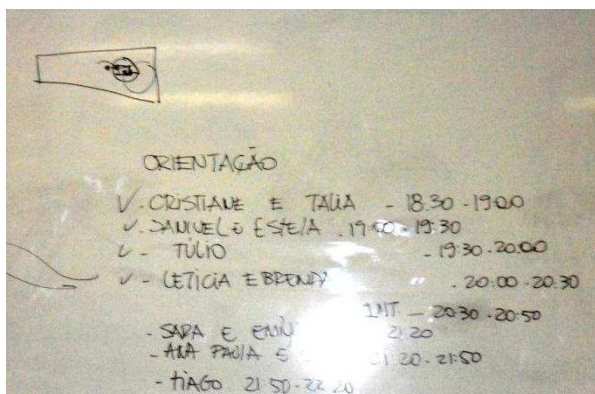 ORIENTAÇÃO
✓ - CRISTIANE E TALIA - 18.30 - 19.00
✓ - E ESTELA . 19.00 - 19:30
✓ - TÚLIO - 19:30 - 20.00
✓ - LETICIA E BRENDA - 20:00 - 20:30
INT - 20:30 - 20:50
- SARA E 21:20
- ANA PAULA E 21:20 - 21:50
- TIAGO 21:50 - 22:20